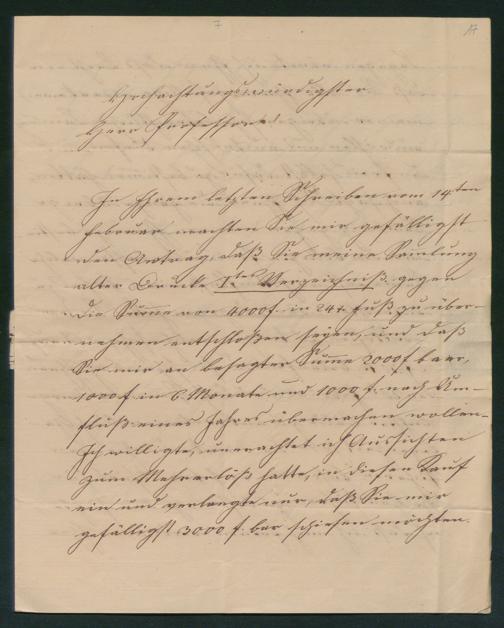 7
Verehrtester
Herr Professor!
In Ihrem letzten Schreiben vom 14ten
Februar machten Sie mir gefälligst
den Antrag, daß Sie meine Samlung
alter Drucke Ites Verzeichniß gegen
die Summe von 4000 f. in 24r Fuß zu über-
nehmen entschloßen seyen, und daß
Sie mir an besagter Summe 2000 f baar,
1000 f in 6 Monate und 1000 f. nach Um-
fluß eines Jahres übermachen wollen.
Ich willigte, unerachtet ich Aussichten
zum Mehrerlöß hatte, in diesen Kauf
ein und verlangte nur, daß Sie mir
gefälligst 3000 f. bar schießen möchten.